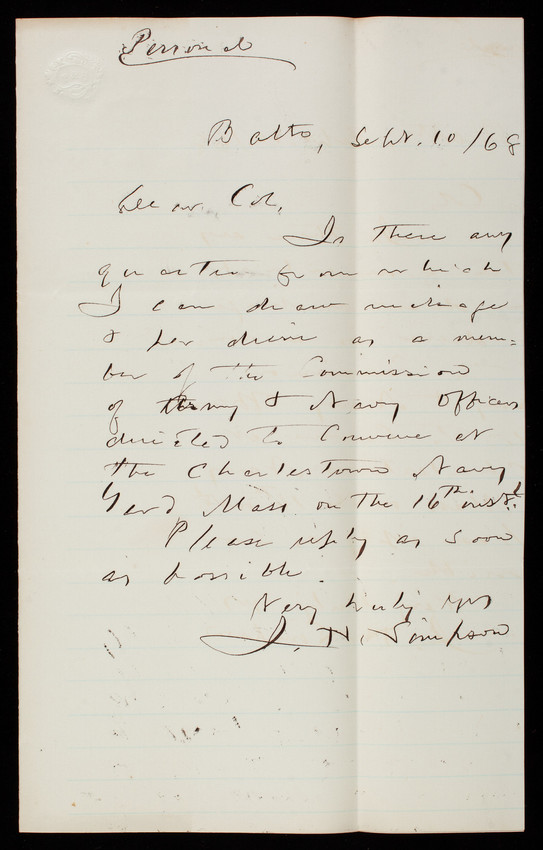 Personal
Balto, Sept. 10/68
Dear Col,
Is there any
quarter from which
I can draw mileage
& per diem as a mem=
ber of the Commission
of Army & Navy Officers
directed to Convene at
the Charlestown Navy
Yard Mass on the 16th inst.
Please reply as soon
as possible.
Very truly yrs
J. H. Simpson